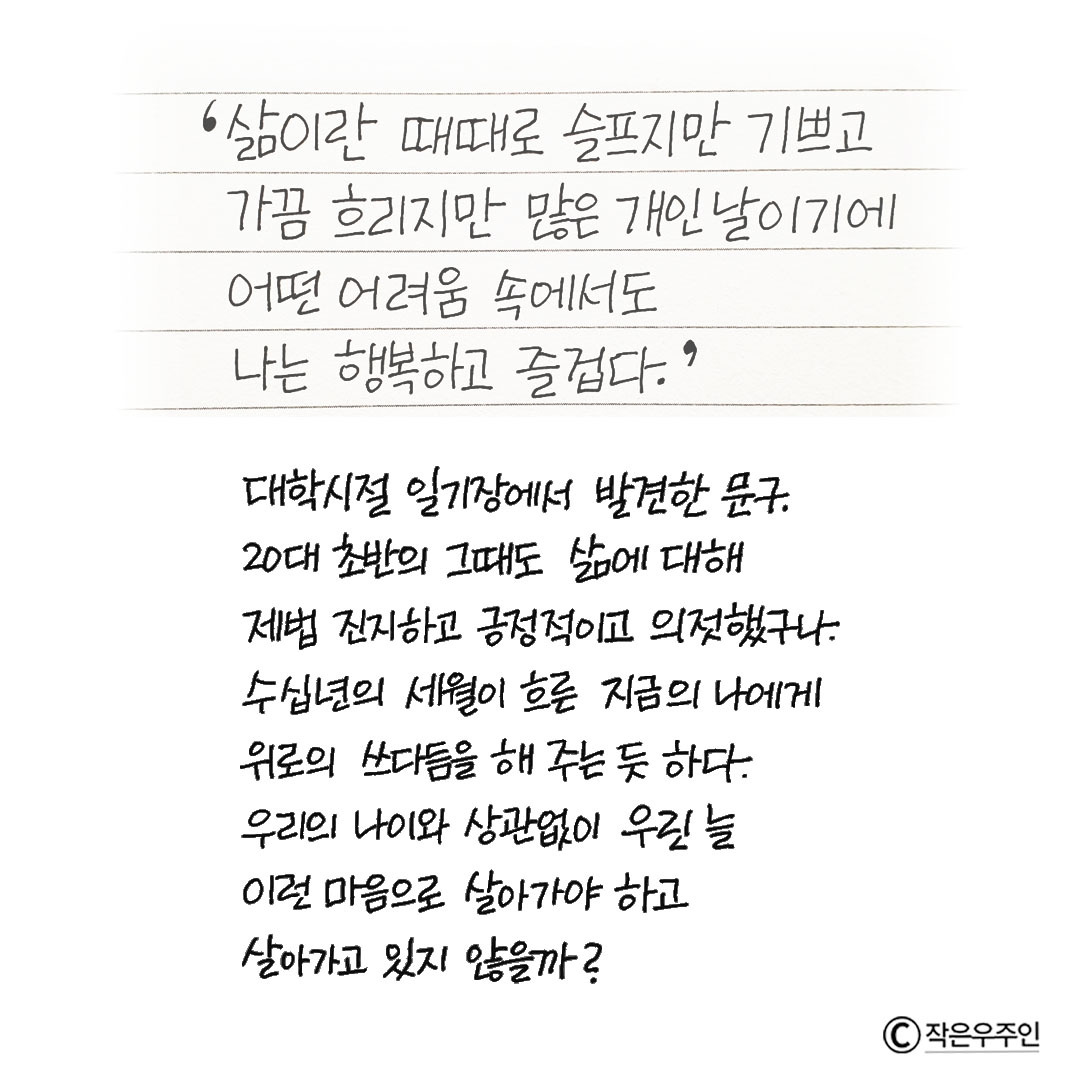 ‘삶이란 때때로 슬프지만 기쁘고
가끔 흐리지만 많은 개인날이기에
어떤 어려움 속에서도
나는 행복하고 즐겁다.’
대학시절 일기장에서 발견한 문구.
20대 초반의 그때도 삶에 대해
제법 진지하고 긍정적이고 의젓했구나.
수십년의 세월이 흐른 지금의 나에게
위로의 쓰다듬을 해 주는 듯 하다.
우리의 나이와 상관없이 우린 늘
이런 마음으로 살아가야 하고
살아가고 있지 않을까?
ⓒ작은우주인